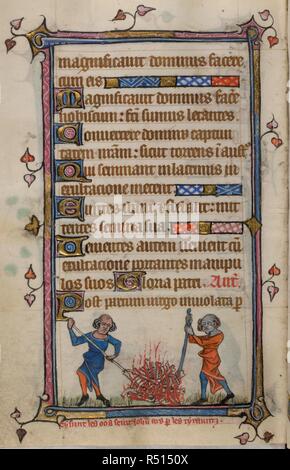 magnificauit dominus facere
cum eis
Magnificauit dominus face
nobiscum: fti sumus letantes.
Conuertere domine captiui
tatem nram: sicut torrens i aust
Qui seminant in lacrimis in
exultatione metent
Euntes ibant et flebant: mit
tentes semina sua
Uenientes autem uenient cū
exultatione portantes manipu
los suos Gloria patri. Ant.
Post partum uirgo inuiolata p
alamy
R5150X